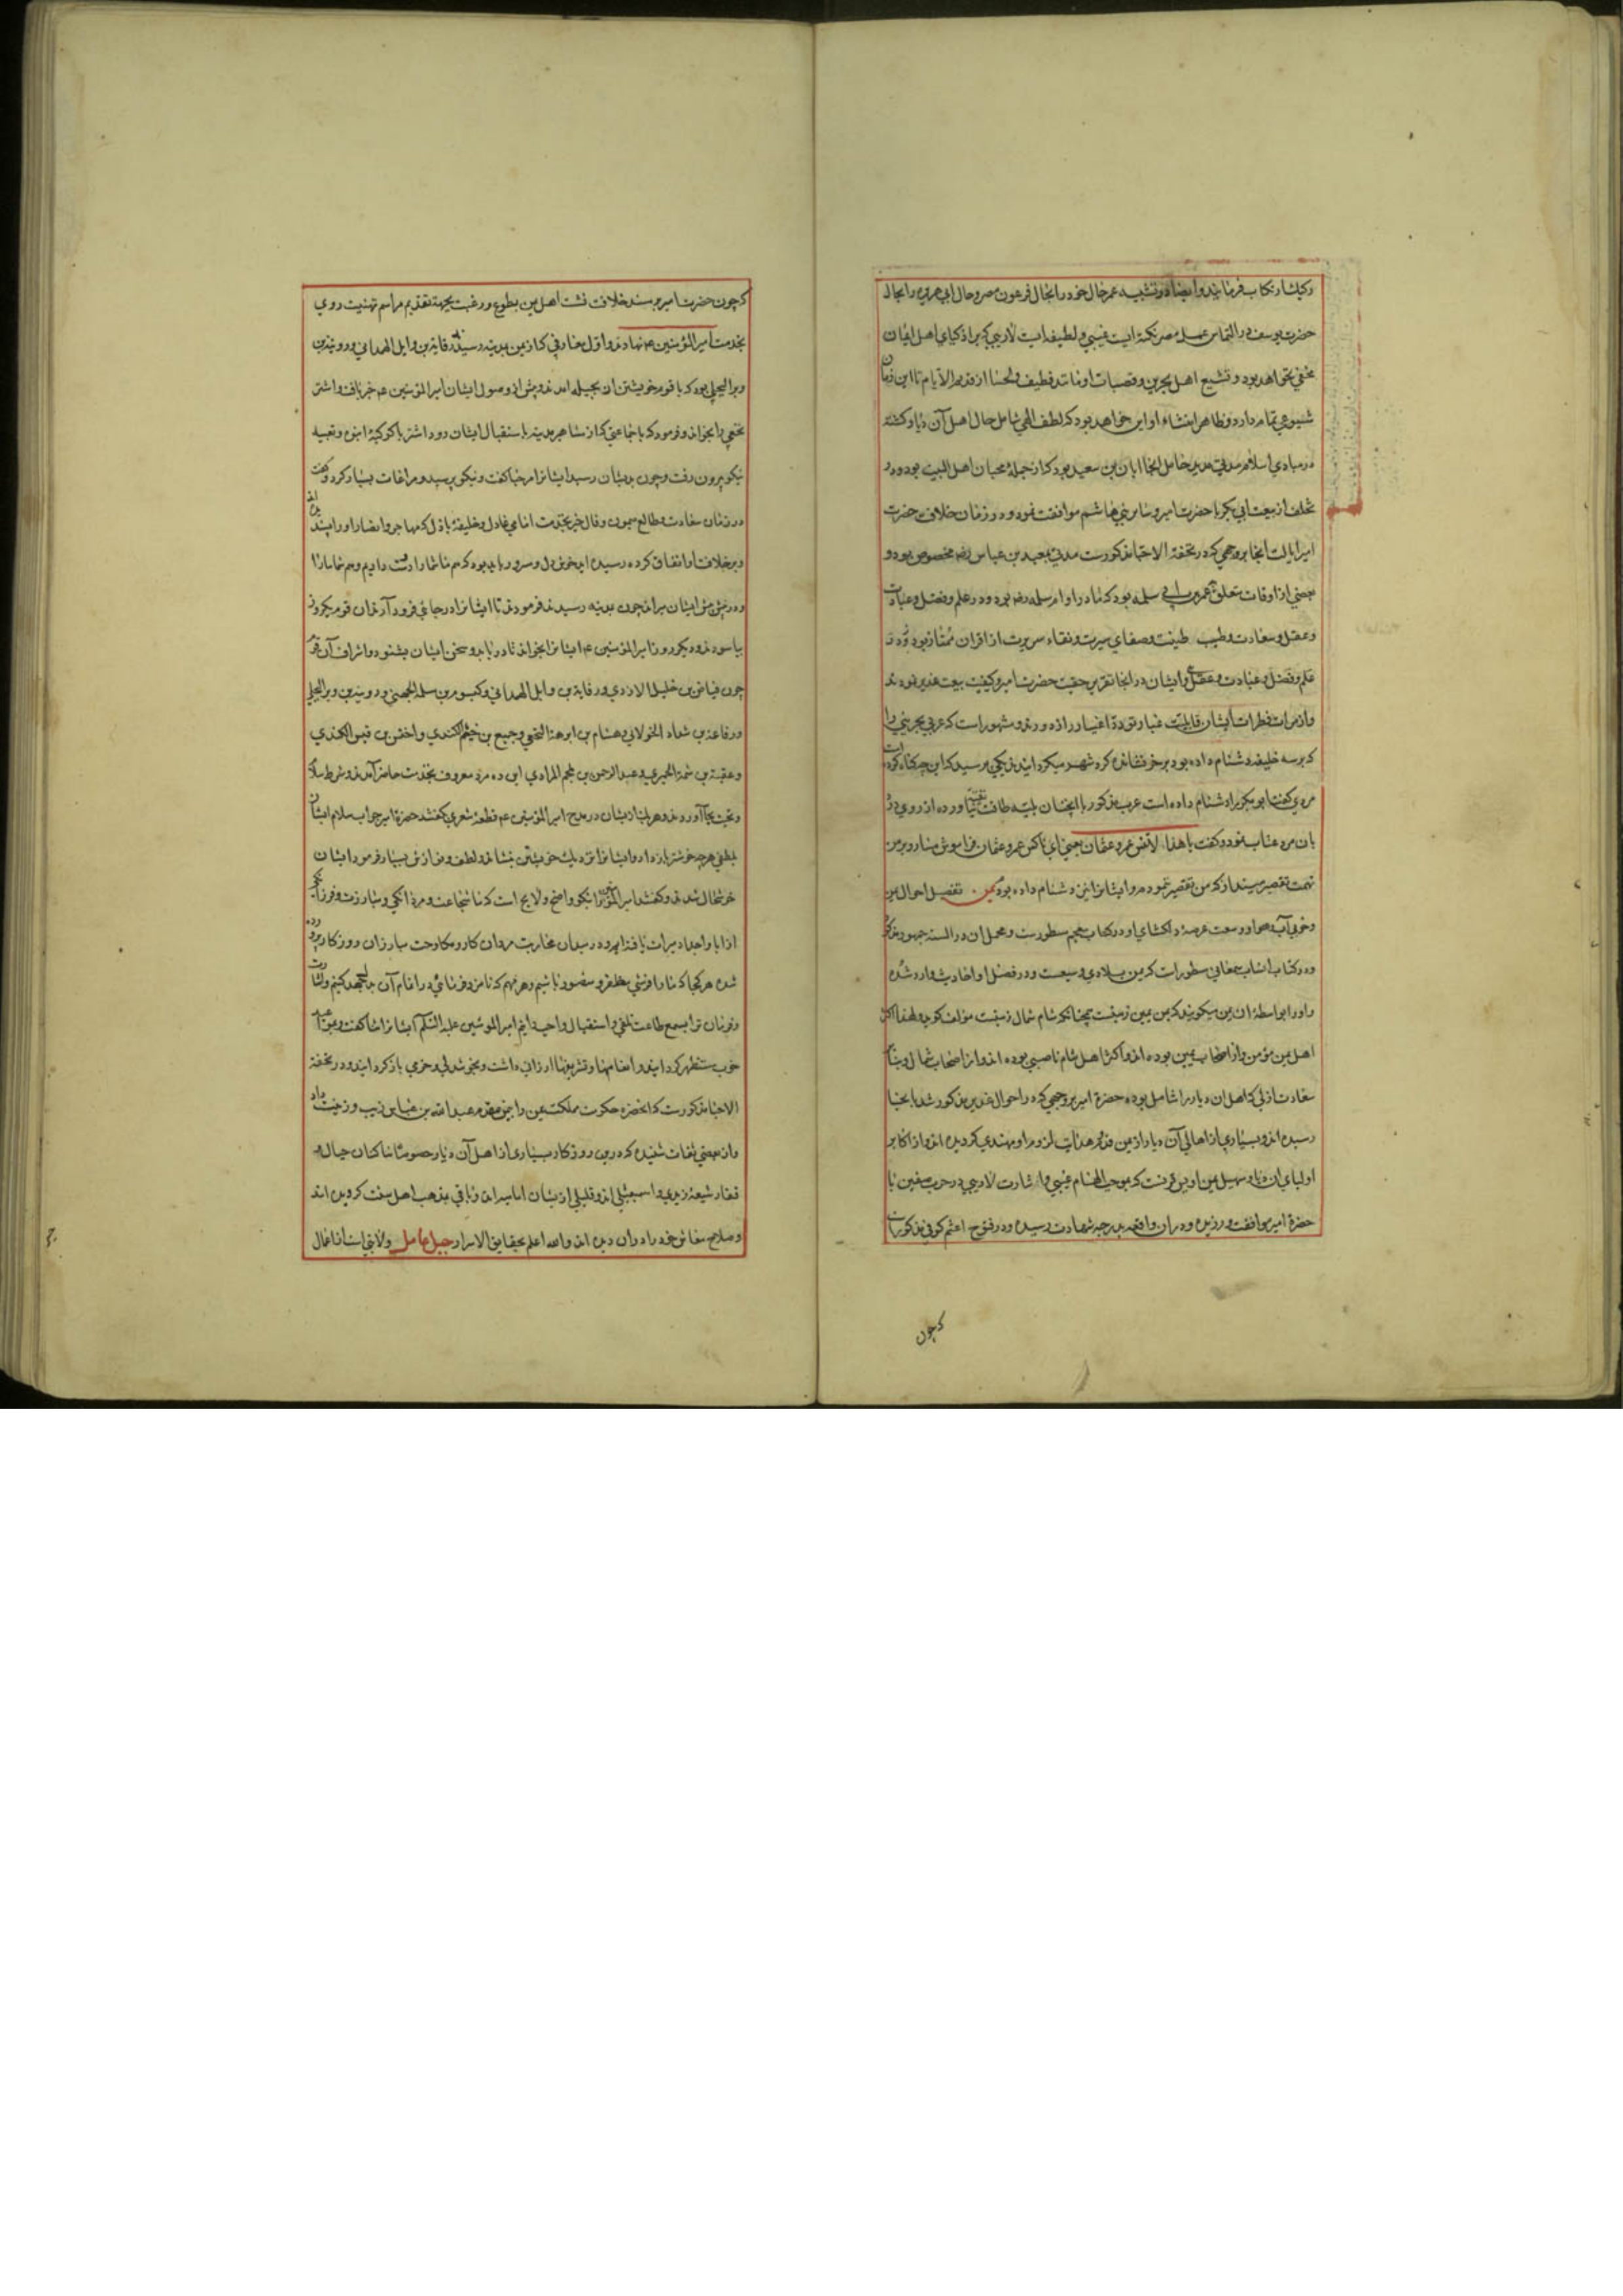 رکیک ارتکاب فرمایند و ایضا در تشبیه عمر حال خود را بحال فرعون مصر و حال ابی هریره را بحال
حضرت یوسف در التماس عمل مصر نکته ایست غیبی و لطیفه ایست لاریبی که بر اذکیای اهل ایمان
مخفی نخواهد بود و تشیع اهل بحرین و قصبات او مانند قطیف و لحسا از قدیم الایام تا این زمان
شیوعی تمام دارد و ظاهرا منشاء او این خواهد بود که لطف الهی شامل حال اهل آن دیار کشته
در مبادی اسلام مدتی مدید عامل انجا ابان بن سعید بود که از جمله محبان اهل البیت بود و در
تخلف از بیعت ابی بکر با حضرت امیر و سایر بنی هاشم موافقت نمود و در زمان خلافت حضرت
امیر ایالت انجا بروجهی که در تحفة الاحبا مذکورست مدتی بمعبد بن عباس رضه مخصوص بود و
بعضی از اوقات متعلق بعمر بن ابی سلمه بود که مادر او ام سلمه رضه بود و در علم و فضل و عبادت
و عقل و سعادت و طیب طینت و صفای سیرت و نقاء سریرت از اقران ممتاز بود و در
علم و فضل و عبادت و عقل و ایشان در انجا تقریر حقیت حضرت امیر و کیفیت بیعت غدیر نمودند
و از مرات فطرات ایشان قابلیت غبار تودد اغیار را زدودند و مشهور است که عربی بحرینی را
که بر سه خلیفه دشنام داده بود بر خر نشانده کرد شهر میکردانیدند یکی پرسید که این چه کناه کرده است
مردی کفت ابو بکر را دشنام داده است عرب مذکور با انچنان بلیه طاقت تقیه نیاورده از روی درد
بان مرد عتاب نمود و کفت یا هذا لا تنس عمر و عثمان یعنی ای ناکس عمر و عثمان فراموش مساز و بر من
تهمت تقصیر مینداز که من تقصیر ننموده‌ام و ایشانرا نیز دشنام داده بودم یمن تفصیل احوال یمن
و خوبی آب و هوا و وسعت عرصه دلکشای او در کتاب معجم مسطورست و مجمل ان در السنه جمهور مذکور
و در کتاب انساب سمعانی مسطور است که یمن بلادی وسیعست و در فضل او احادیث وارد شده
و او را بواسطه ان یمن میکویند که یمن یمین زمینست چنانکه شام شمال زمینست مؤلف کوید و لهذا اکثر
اهل یمن مؤمن و از اصحاب یمین بوده اند و اکثر اهل شام ناصبی بوده اند و از اصحاب شمال و بنا
سعادت ازلی که اهل ان دیار را شامل بوده حضرة امیر بروجهی که در احوال غدیر مذکور شد بانجا
رسیده اند و بسیاری از اهالی آن دیار از یمن قدوم هدایت لزوم او مهتدی کردیده اند و از اکابر
اولیای ان دیار سهیل یمن اویس قرنست که بموجب الهام غیبی و اشارت لاریبی در حرب صفین با
حضرة امیر موافقت ورزیده و در ان واقعه بدرجه شهادت رسیده و در فتوح اعثم کوفی مذکور است
که چون
که چون حضرت امیر بر مسند خلافت نشست اهل یمن بطوع و رغبت بجهة تقدیم مراسم تهنیت روی
بخدمت امیر المؤمنین عم نهادند و اول طایفه که از یمن بمدینه رسیدند رفاعة بن وایل الهمدانی و رویبة بن
وبر البجلی بود که با قوم خویشتن از بجیله امدند و پیش از وصول ایشان امیر المؤمنین عم خبر یافت و اشتر
نخعی را بخواند و فرمود که با جماعتی که از مشاهیر مدینه باستقبال ایشان رود اشتر با کوکبه انبوه و تعبیه
نیکو بیرون رفت و چون بدیشان رسید ایشانرا مرحبا کفت و نیکو پرسید و مراعات بسیار کرد و کفت
در زمان سعادت و طالع میمون و فال خیر بخدمت امامی عادل و خلیفه باذل که مهاجر و انصار او را پسندیده اند
و بر خلافت او اتفاق کرده رسیدید خوش دل و مسرور باید بود که هم ما شما را دوست داریم و هم شما ما را
و در پیش ایشان براند چون بمدینه رسیدند فرمود تا ایشانرا در جائی فرود آوردند ان قوم یکروز
بیاسودند و دیکر روز امیر المؤمنین عم ایشانرا بخواند تا دریابد و سخن ایشان بشنود و اشراف آن قوم
چون فیاض بن خلیل الازدی و رفاعة بن وایل الهمدانی و کیسوم بن سلمة الجهنی و رویبة بن وبر البجلی
و رفاعة بن شداد الخولانی و هشام بن ابرهة النخعی و جمیع بن خیثم الکندی و اخنس بن قیس الکندی
و عقبة بن النعمان الحمیری و عبد الرحمن بن ملجم المرادی این ده مرد معروف بخدمت حاضر آمدند و شرط سلام
و تحیت بجا آوردند و هر یک از ایشان در مدح امیر المؤمنین عم قطعه شعری کفتند حضرة امیر جواب سلام ایشان
بلطفی هرچه خوشتر باز داد و ایشانرا نزدیک خویشتن بنشاند و لطف و نوازش بسیار فرمود ایشان
خوشحال شدند و کفتند امیر المؤمنین را نیکو واضح و لایح است که ما شجاعت و مردانکی و مبارزت و فرزانکی
از ابا و اجداد میراث یافته‌ایم و در میدان محاربت مردان کار و مکاوحت مبارزان روزکار پرورده
شده هر کجا که ما را فرستی مظفر و منصور باشیم و هر مهم که نامزد فرمائی در اتمام آن جهد کنیم و اشارت
و فرمان ترا بسمع طاعت تلقی و استقبال واجب دانیم امیر المؤمنین علیه السلم ایشانرا ثنا کفت و بمواعید
خوب مستظهر کردانید و انعامها و تشریفها ارزانی داشت و بخوشدلی و خرمی باز کردانید و در تحفة
الاحبا مذکورست که انحضرة حکومت مملکت یمن را بیمن مقدم عبد الله بن عباس زیب و زینت داد
و از بعضی ثقات شنیده که درین روزکار بسیاری از اهل آن دیار خصوصا ساکنان جبال و
قفار شیعه زیدی و اسمعیلی اند و قلیلی از ایشان امامیه اند و باقی بمذهب اهل سنت کرویده اند
و صلاح معاش خود را در ان دیده اند و الله اعلم بحقایق الاسرار جبل عامل ولایتی است از اعمال